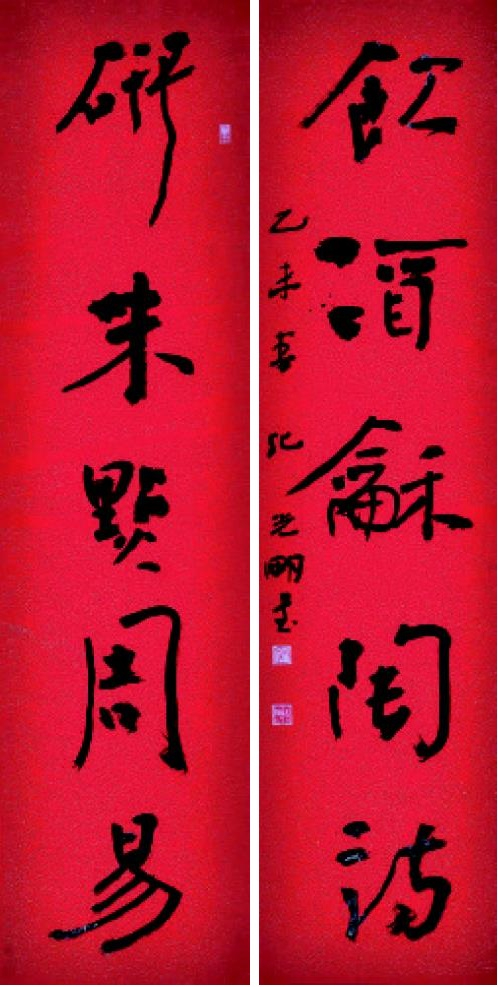 研朱點周易
飲酒龢陶詩
乙未春 纪光明